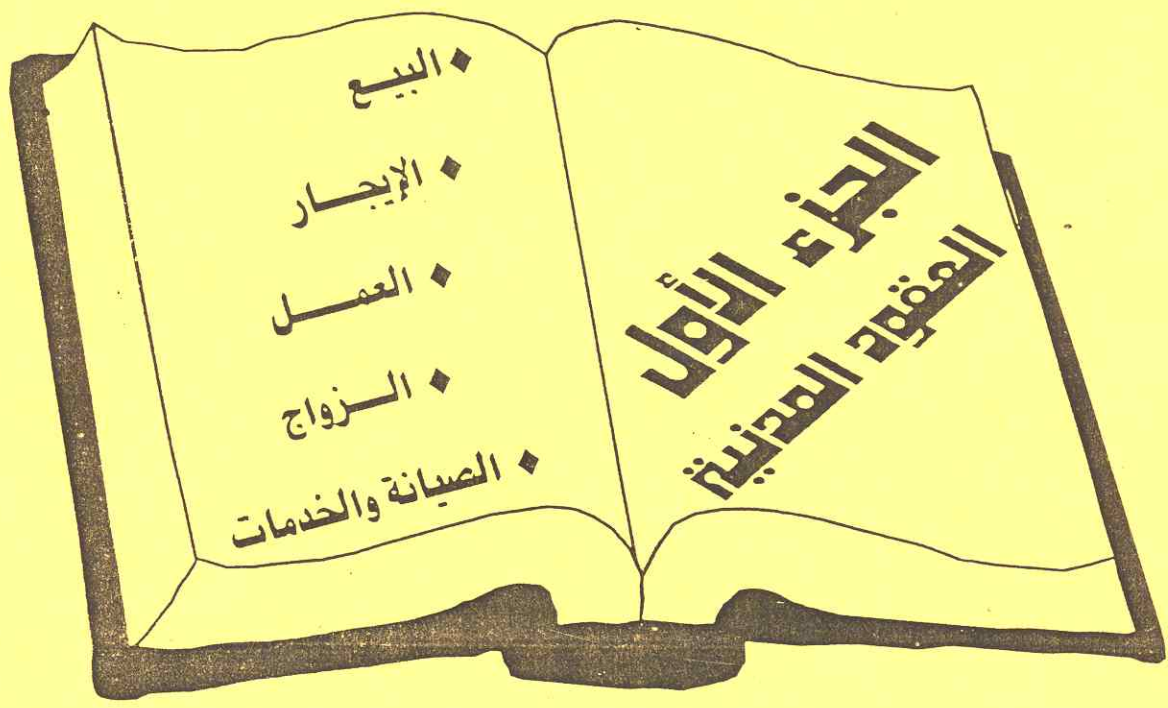 الجزء الأول
العقود المدنية
♦ البيـع
♦ الإيجـار
♦ العمـل
♦ الـزواج
♦ الصيانة والخدمات